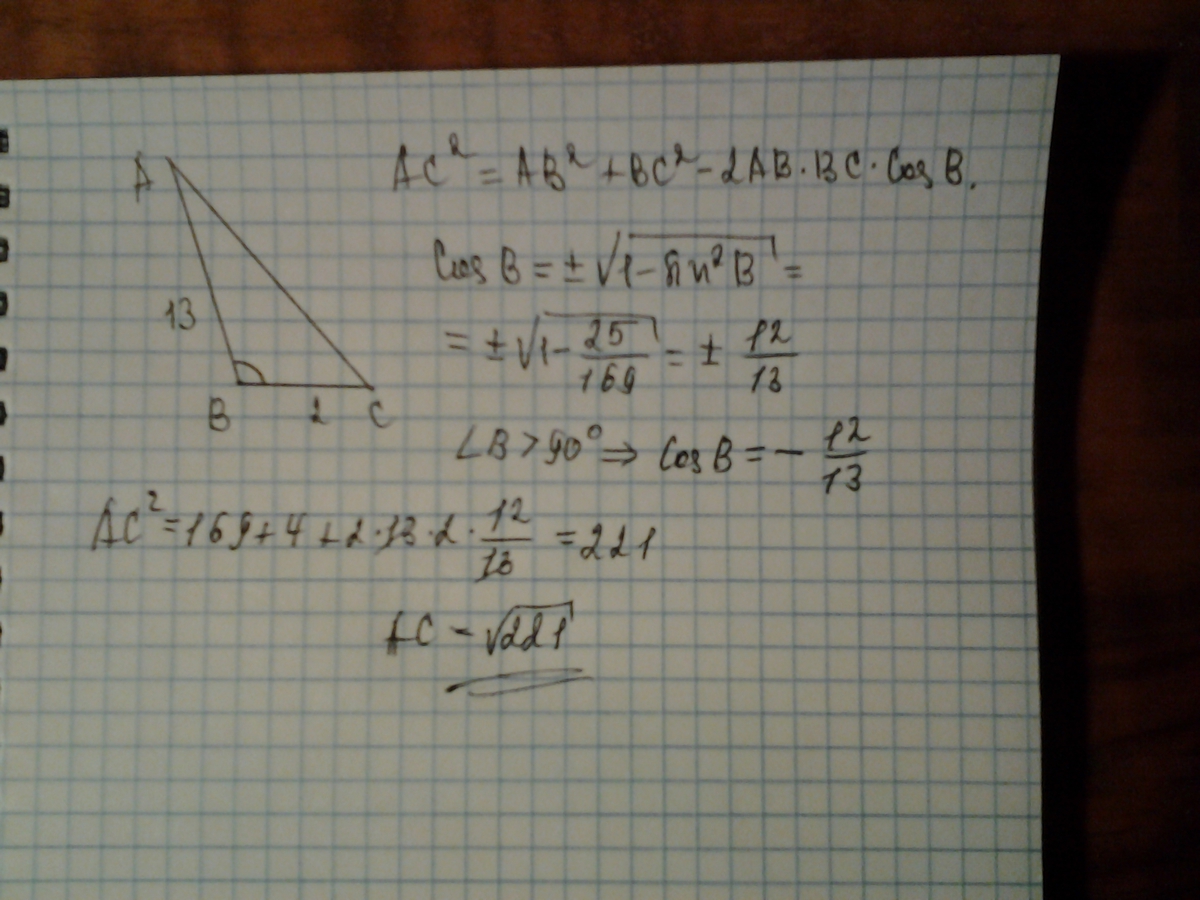 A
13
B 2 C
AC² = AB² + BC² - 2AB · BC · Cos B.
Cos B = ± √(1 - sin² B) =
= ± √(1 - 25/169) = ± 12/13
∠B > 90° ⇒ Cos B = - 12/13
AC² = 169 + 4 + 2 · 13 · 2 · 12/13 = 221
AC = √221